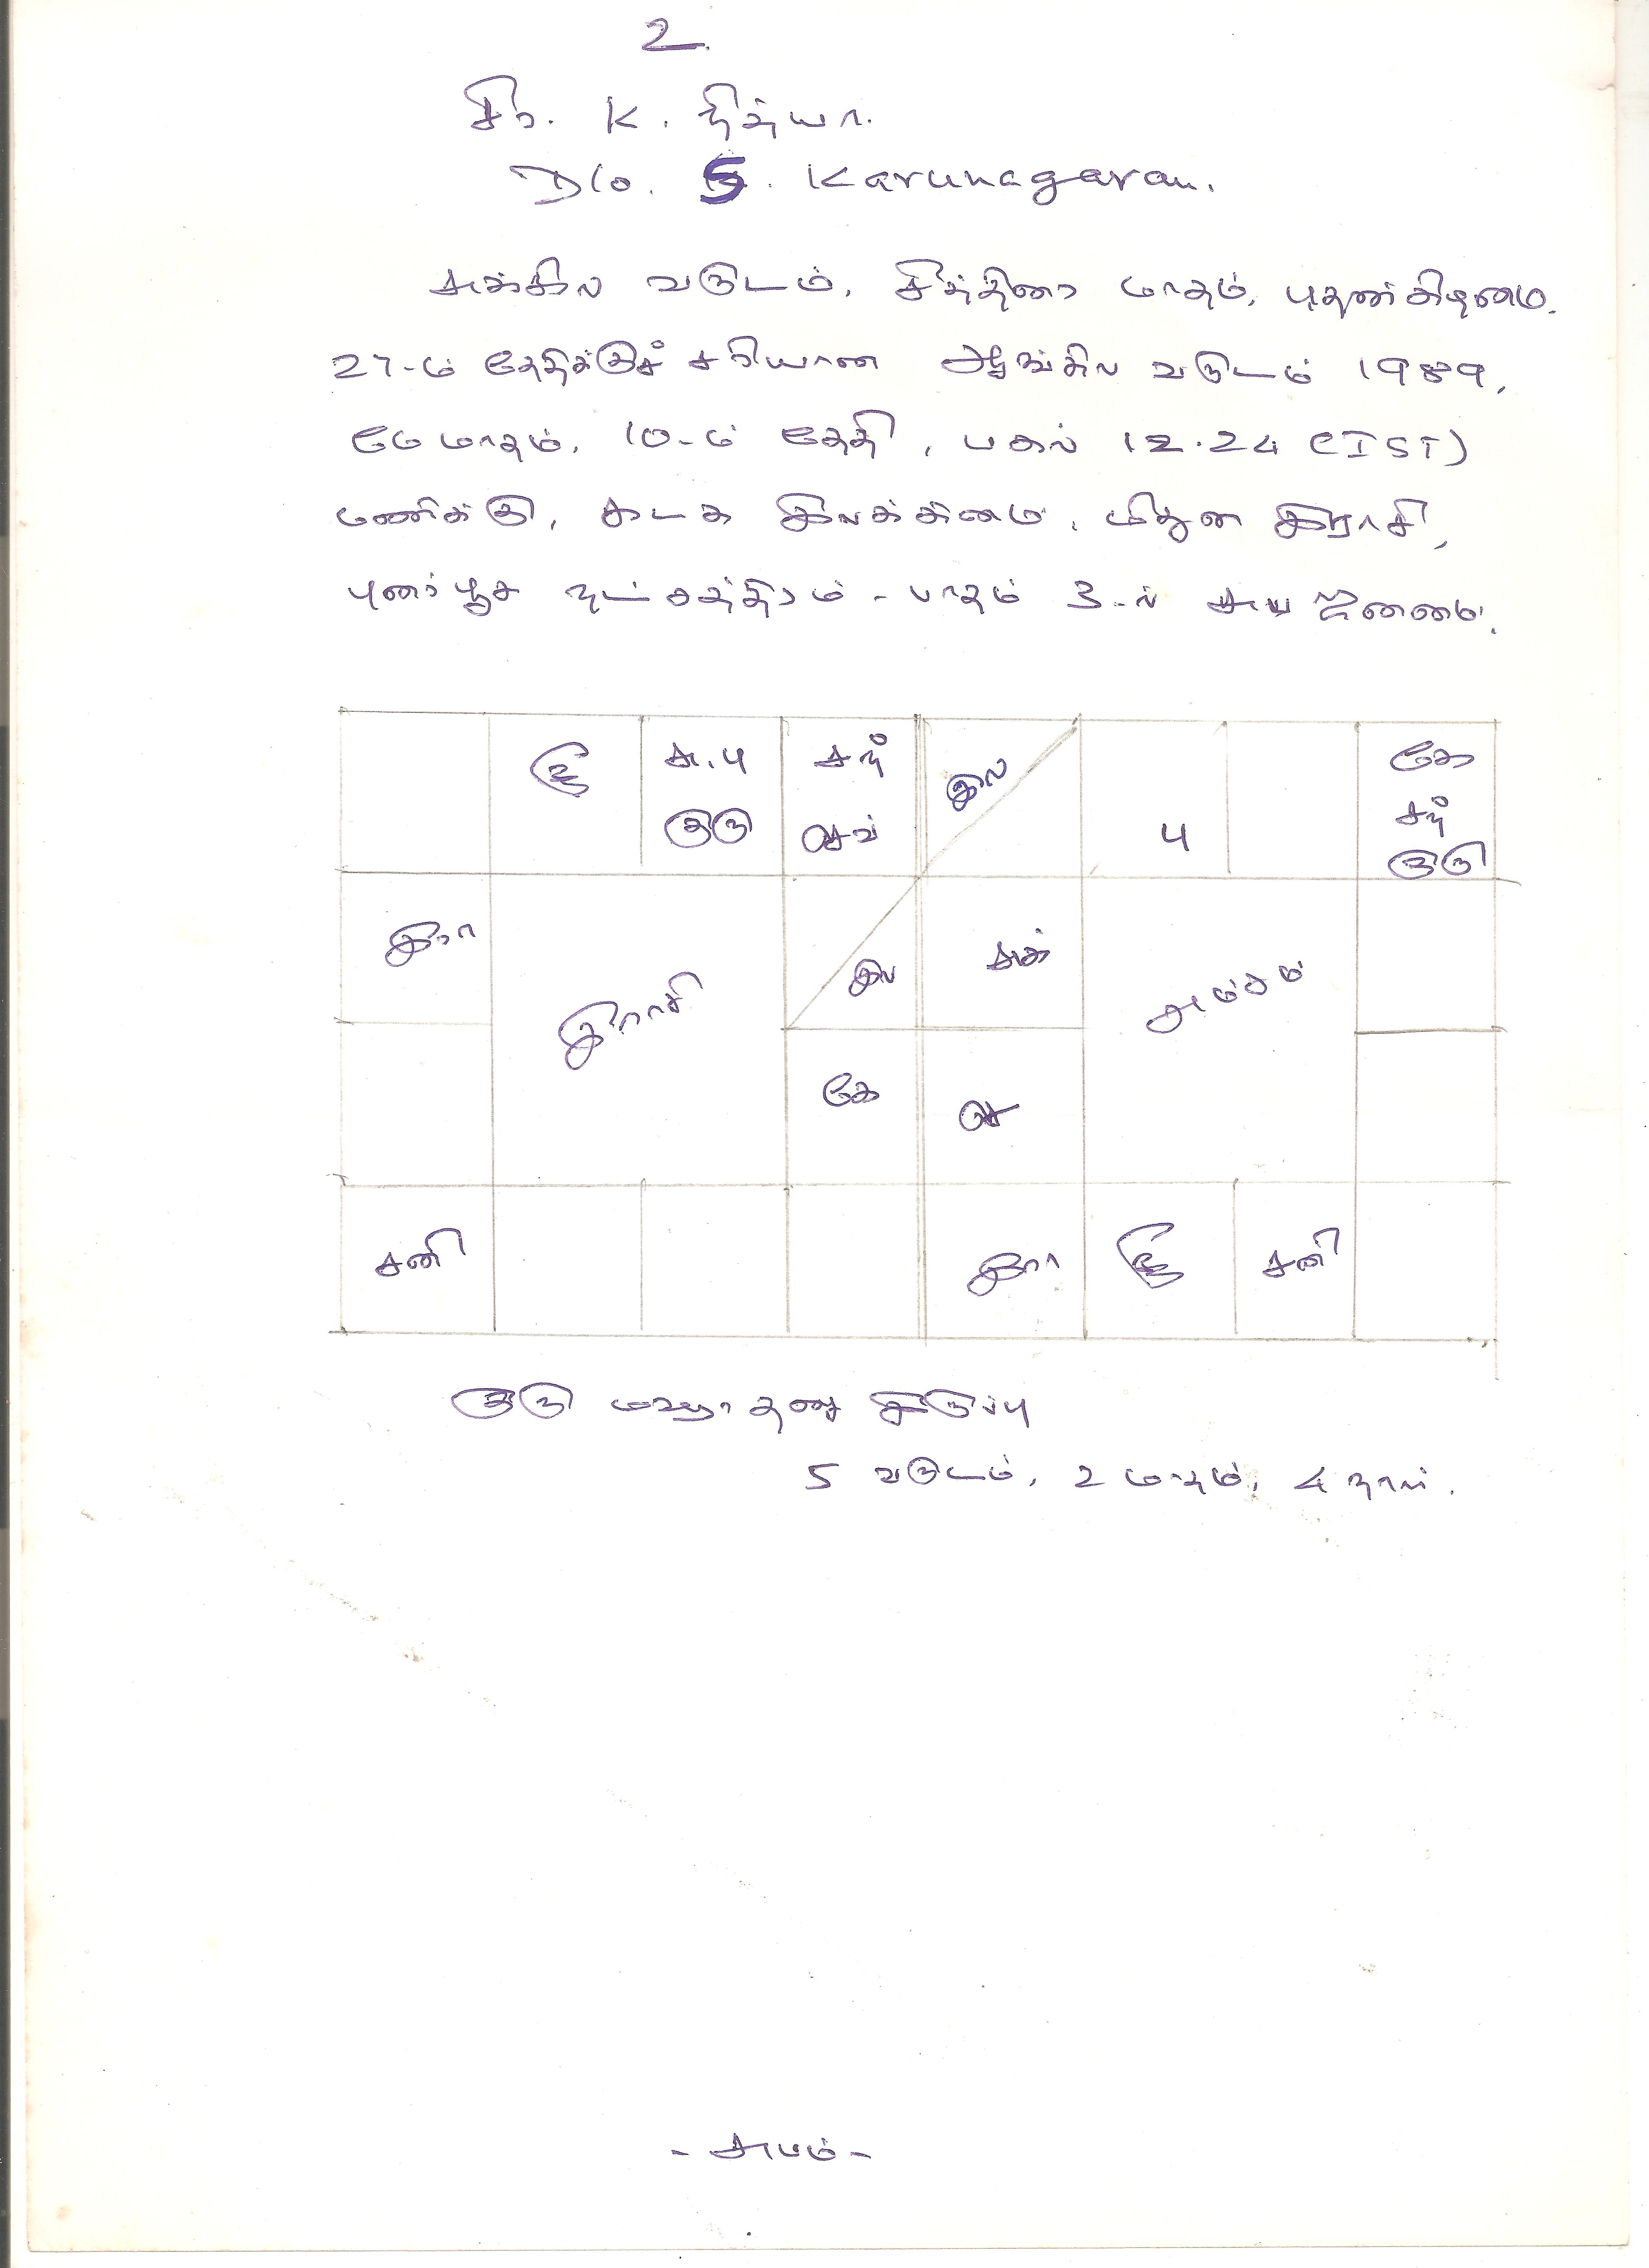 2.
சி. K. நித்யா.
D/o. S. Karunagaran.
சுக்கில வருடம், சித்திரை மாதம், புதன்கிழமை.
27-ம் தேதிக்குச் சரியான ஆங்கில வருடம் 1989,
மே மாதம், 10-ம் தேதி, பகல் 12.24 (IST)
மணிக்கு, கடக இலக்கினம், மிதுன இராசி,
புனர்பூச நட்சத்திரம் - பாதம் 3-ல் சுப ஜனனம்.
சூ சு.பு சந் இல கே
குரு செவ் பு சந்
குரு
இரா இல சுக்
இராசி அம்சம்
கே செ
சனி இரா சூ சனி
குரு மஹா தசை இருப்பு
5 வருடம், 2 மாதம், 4 நாள்.
- சுபம் -